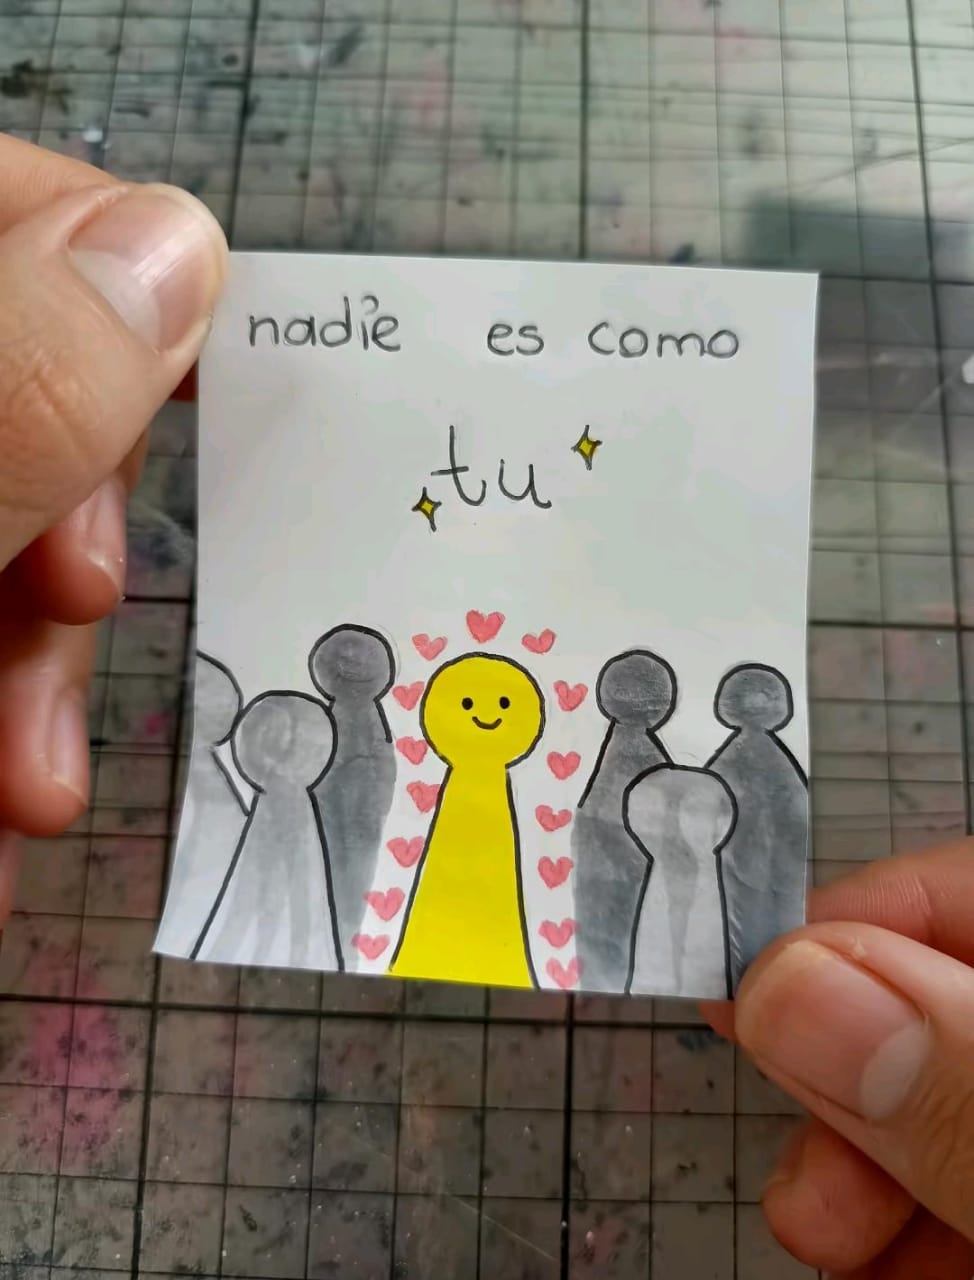 nadie es como
tu